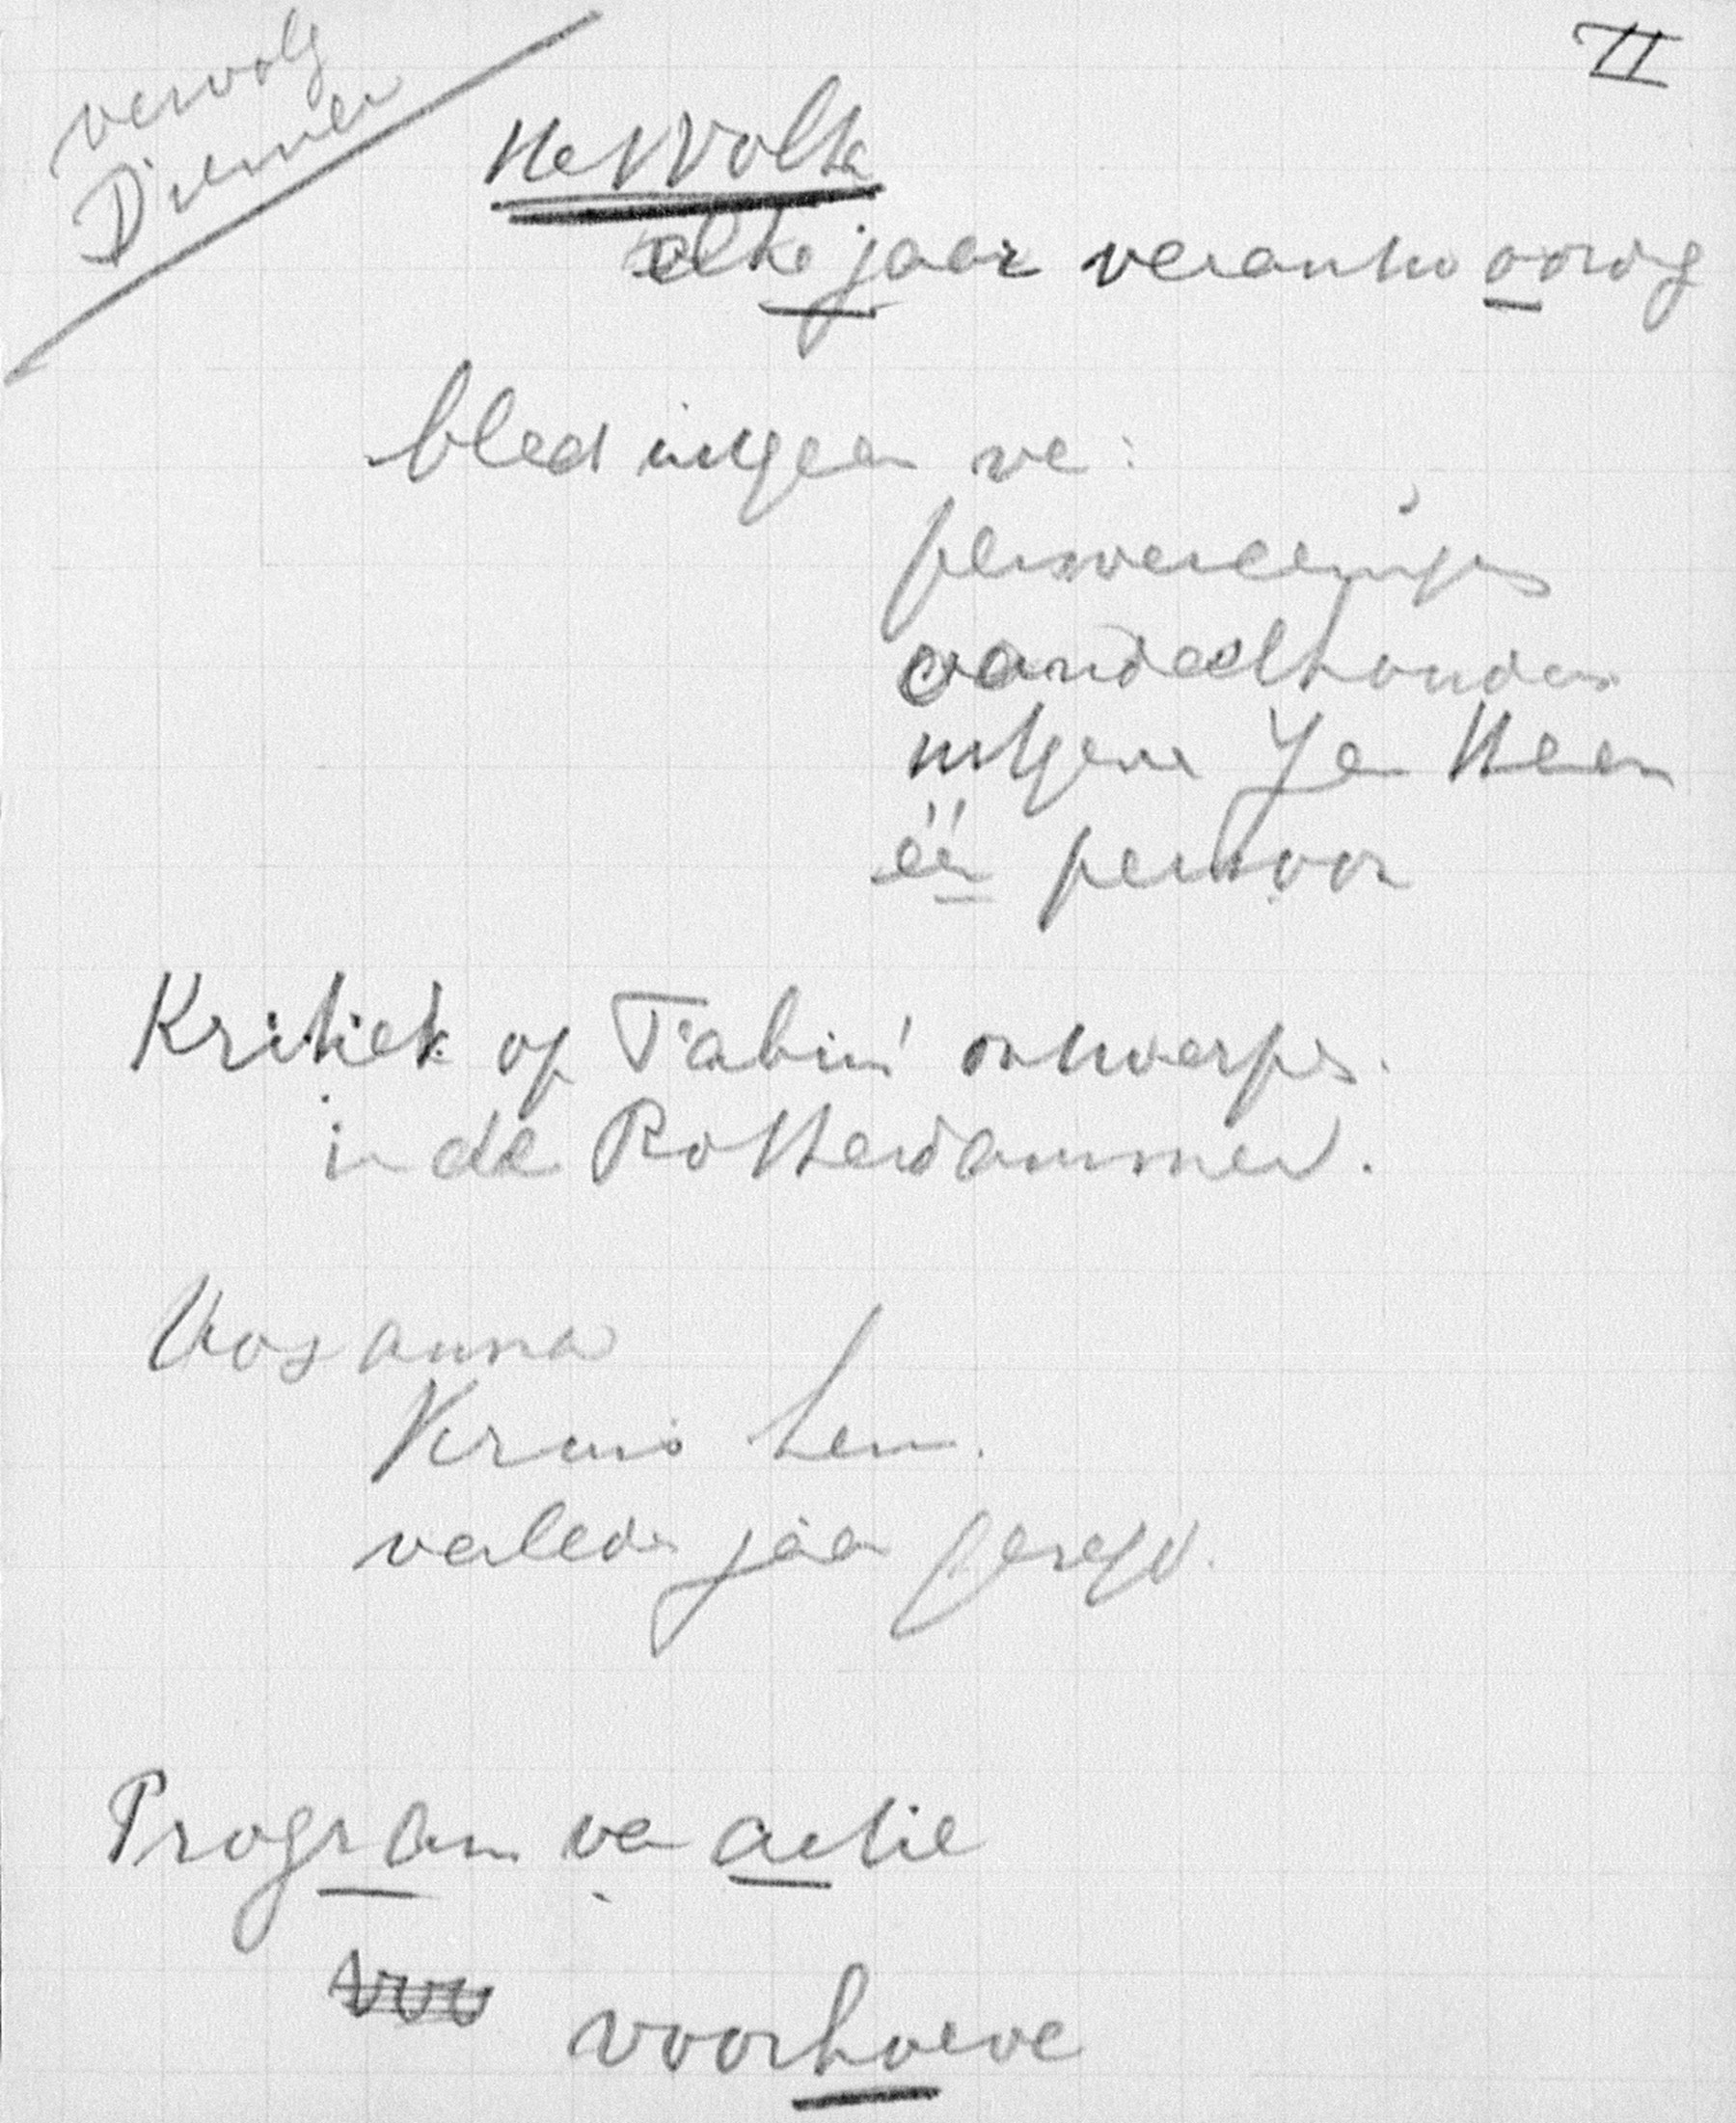 II
vervolg
Diemer
Het Volk
elke jaar verantwoordg
blad uitgeen ve:
persvereenigs
aandeelhouders
uitgever
één persoon
Kritiek op Tabins' ontwerpen.
in de Rotterdammer.
Hosanna
Kruis hem.
verleden jaar gezegd.
Program van actie
voorhoeve